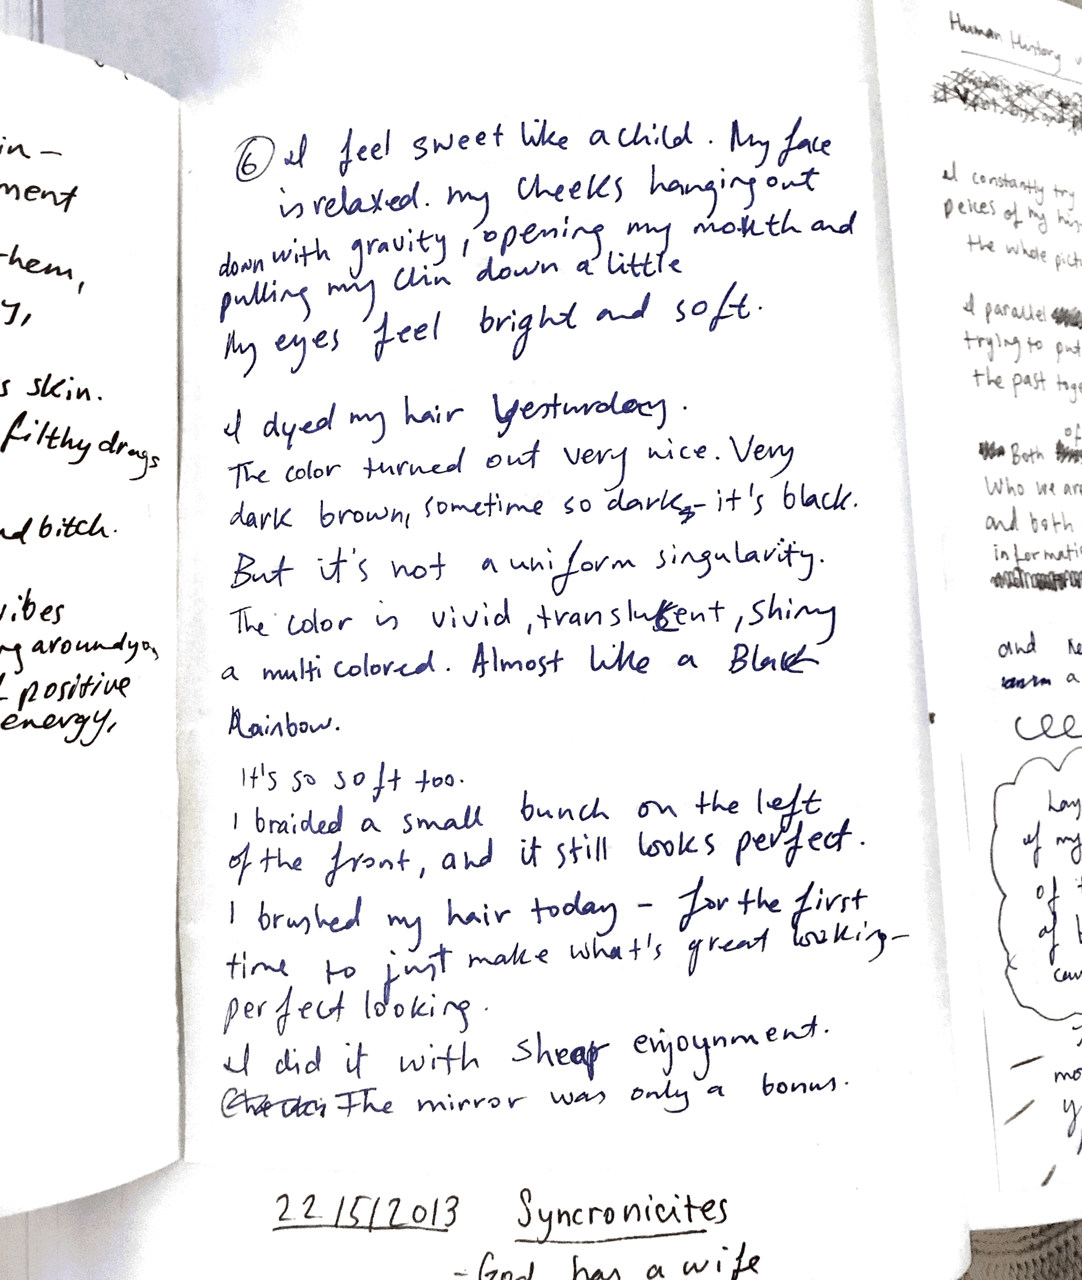 in –
ment
them,
y,
s skin.
filthy drugs
nd bitch.
vibes
ng around you
positive
energy,
⑥ I feel sweet like a child. My face
is relaxed. my cheeks hanging out
down with gravity, opening my mouth and
pulling my chin down a little
My eyes feel bright and soft.
I dyed my hair Yesturday.
The color turned out very nice. Very
dark brown, sometime so dark – it's black.
But it's not a uniform singularity.
The color is vivid, translucent, shiny
a multi colored. Almost like a Black
Rainbow.
It's so soft too.
I braided a small bunch on the left
of the front, and it still looks perfect.
I brushed my hair today – for the first
time to just make what's great looking –
perfect looking.
I did it with shear enjoynment.
The mirror was only a bonus.
22/5/2013 Syncronicites
- God has a wife
Human History
I constantly try
peices of my
the whole
I parallel
trying to put
the past
of
Both
Who we are
and both
and
a
of my
of
of
mo
y